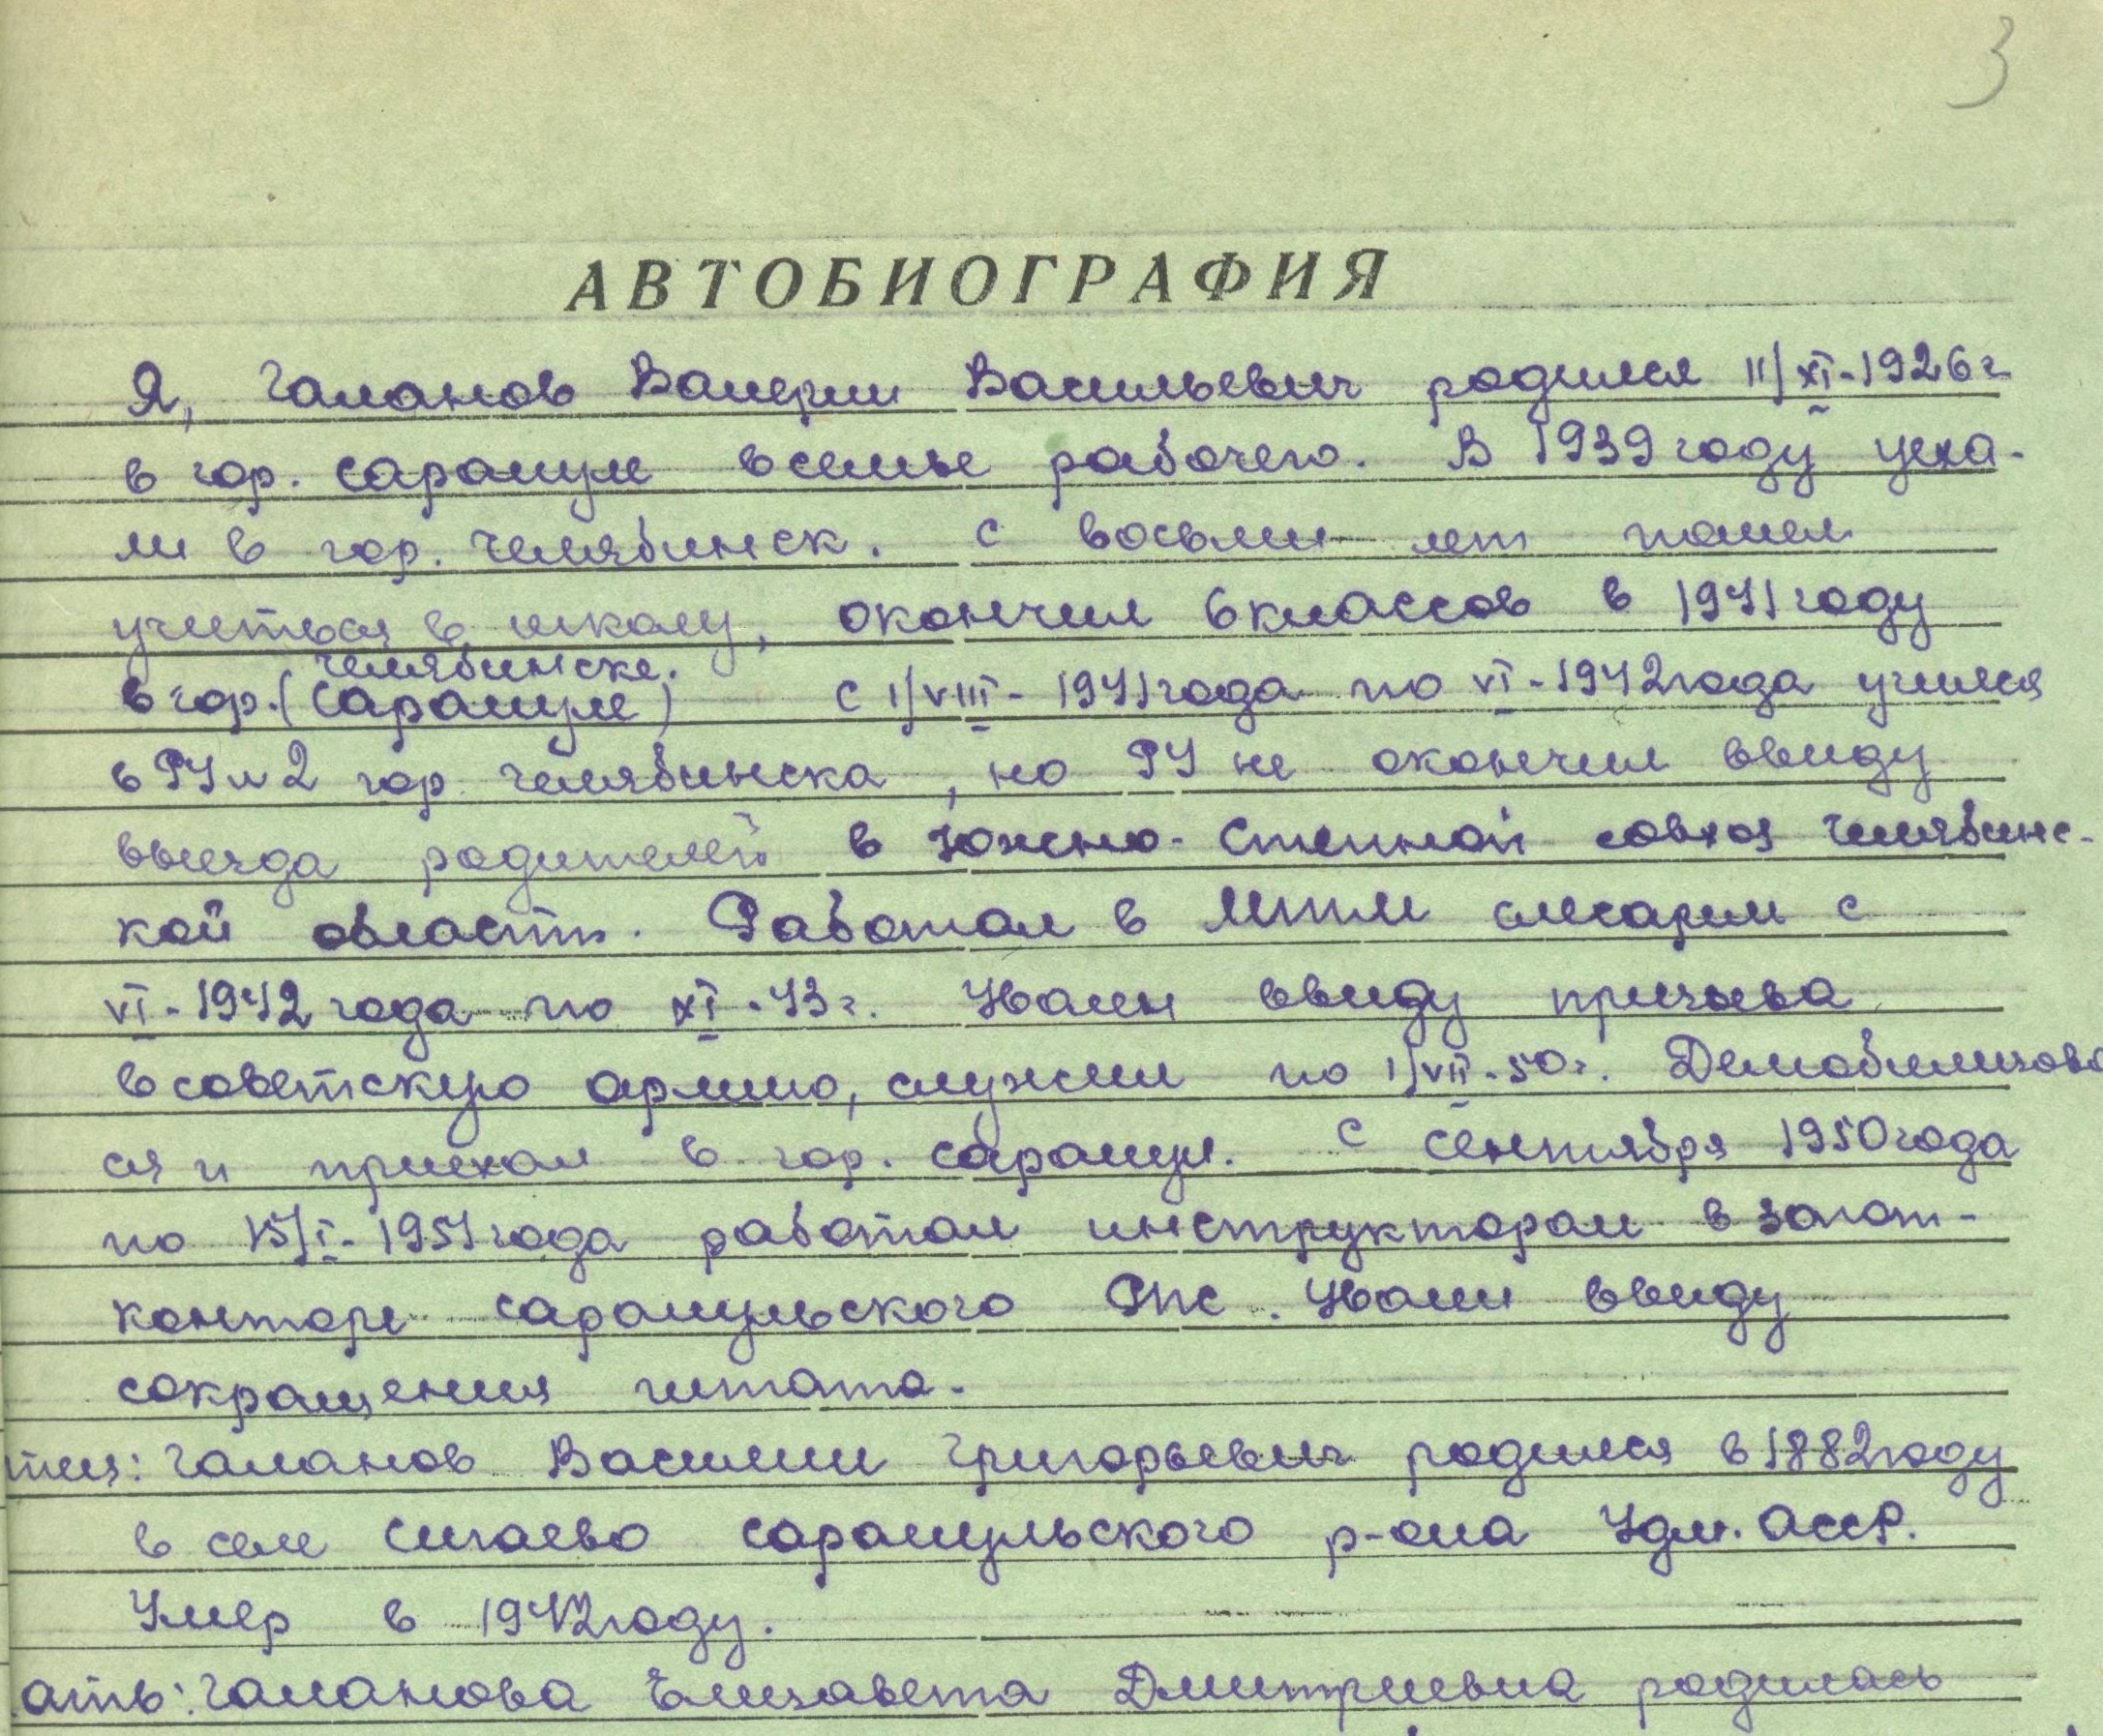 3
АВТОБИОГРАФИЯ
Я, Галанов Валерии Васильевич родился 11/XI-1926г
в гор. Сарапуле в семье рабочего. В 1939 году уеха-
ли в гор. Челябинск. С восьми лет пошел
учиться в школу, окончил 6 классов в 1941 году
Челябинске.
в гор. (Сарапуле) С 1/VIII-1941 года по VI-1942 года учился
в РУ №2 гор. Челябинска, но РУ не окончил ввиду
выезда родителей в Южно-Степной совхоз Челябинс-
кой области. Работал в МТМ слесарем с
VI-1942 года по XI-43г. Уволен ввиду призыва
в советскую армию, служил по 1/VII-50г. Демобилизова
ся и приехал в гор. Сарапул. С сентября 1950 года
по 15/I-1951 года работал инструктором в загот-
конторе Сарапульского РПС. Уволен ввиду
сокращения штата.
Галанов Василии Григорьевич родился в 1882 году
в селе Сигаево Сарапульского р-она Удм. АССР.
Умер в 1942 году.
ать: Галанова Елизавета Дмитриевна родилась